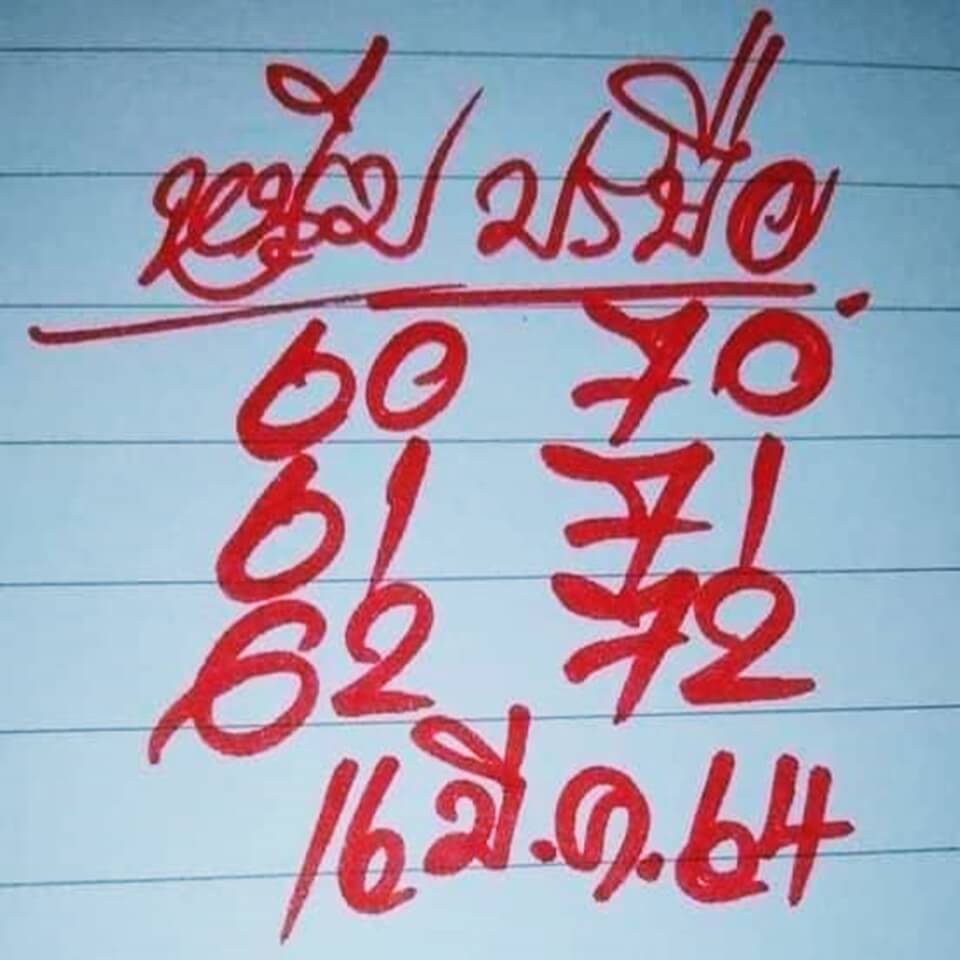 หนึ่ม ปรือ
60 70
61 71
62 72
16 มี.ค.64